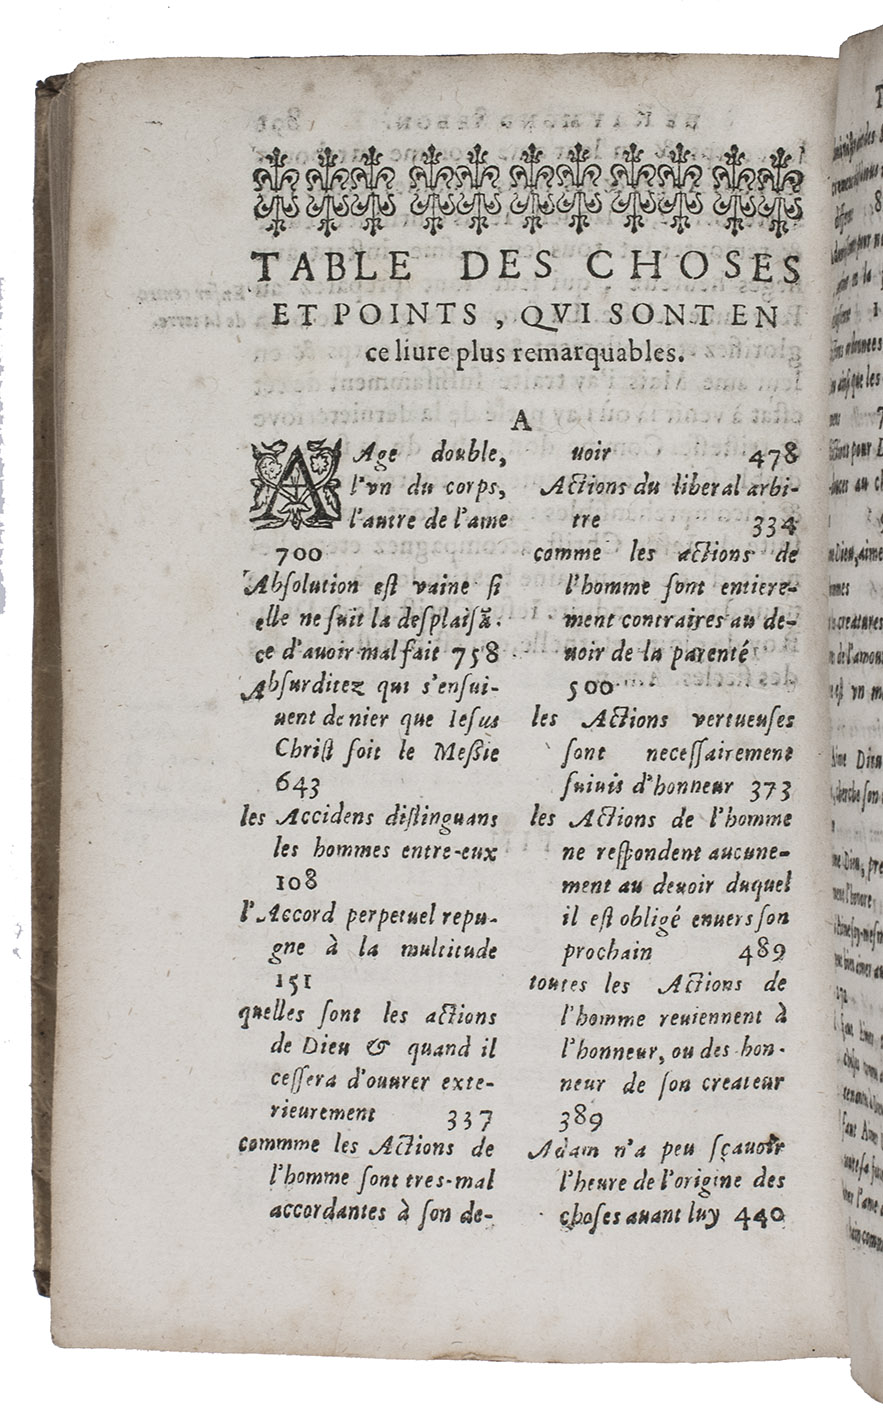 TABLE DES CHOSES
ET POINTS, QVI SONT EN
ce liure plus remarquables.
A
Age double,
l'vn du corps,
l'autre de l'ame
700
Absolution eſt vaine ſi
elle ne ſuit la deſplaiſã-
ce d'auoir mal fait 758
Abſurditez qui s'enſui-
uent de nier que Ieſus
Chriſt ſoit le Meſsie
643
les Accidens diſtinguans
les hommes entre-eux
108
l'Accord perpetuel repu-
gne à la multitude
151
quelles ſont les actions
de Dieu & quand il
ceſſera d'ouurer exte-
rieurement 337
commme les Actions de
l'homme ſont tres-mal
accordantes à ſon de-
uoir 478
Actions du liberal arbi-
tre 334
comme les actions de
l'homme ſont entiere-
ment contraires au de-
uoir de la parenté
500
les Actions vertueuſes
ſont neceſſairement
ſuiuis d'honneur 373
les Actions de l'homme
ne reſpondent aucune-
ment au deuoir duquel
il eſt obligé enuers ſon
prochain 489
toutes les Actions de
l'homme reuiennent à
l'honneur, ou des-hon-
neur de ſon createur
389
Adam n'a peu ſçauoir
l'heure de l'origine des
choſes auant luy 440